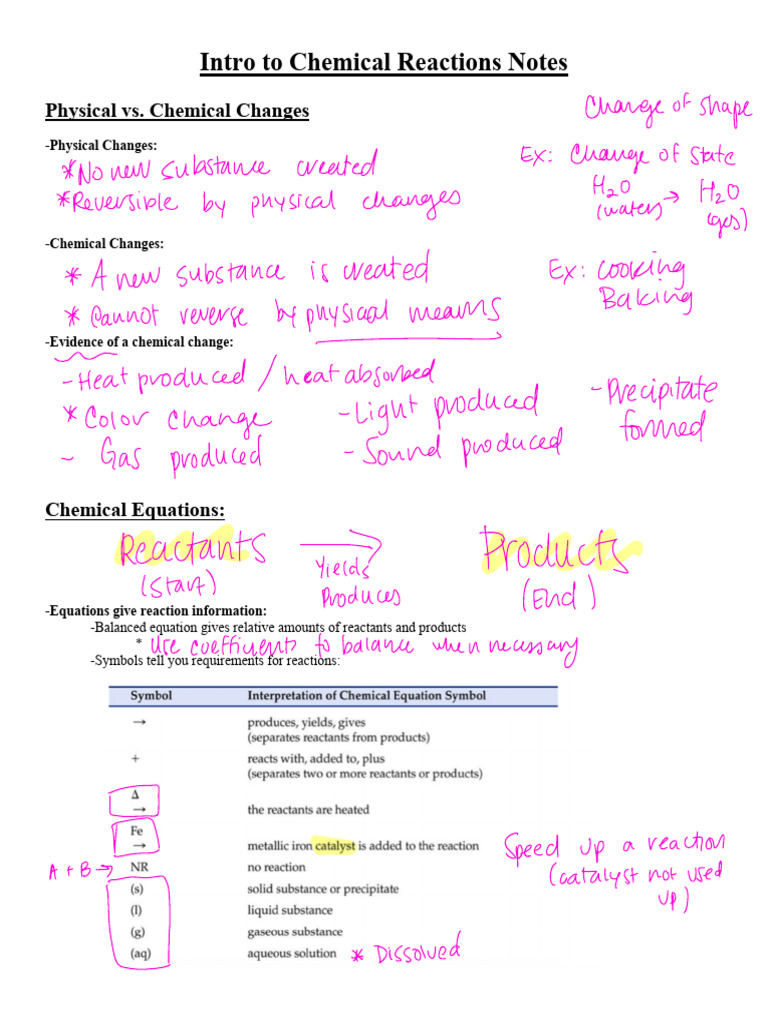 Intro to Chemical Reactions Notes
Physical vs. Chemical Changes
Change of shape
-Physical Changes:
*No new substance created
Ex: Change of State
*Reversible by physical changes
H2O (water) → H2O (gas)
-Chemical Changes:
* A new substance is created
Ex: Cooking
Baking
* Cannot reverse by physical means
-Evidence of a chemical change:
- Heat produced / heat absorbed
* Color change
- Light produced
- Precipitate formed
- Gas produced
- Sound produced
Chemical Equations:
Reactants → Products
(Start) Yields Produces (End)
-Equations give reaction information:
-Balanced equation gives relative amounts of reactants and products
* Use coefficients to balance when necessary
-Symbols tell you requirements for reactions:
Symbol Interpretation of Chemical Equation Symbol
→ produces, yields, gives
(separates reactants from products)
+ reacts with, added to, plus
(separates two or more reactants or products)
Δ
→ the reactants are heated
Fe
→ metallic iron catalyst is added to the reaction
Speed up a reaction
(catalyst not used up)
A + B → NR no reaction
(s) solid substance or precipitate
(l) liquid substance
(g) gaseous substance
(aq) aqueous solution * Dissolved